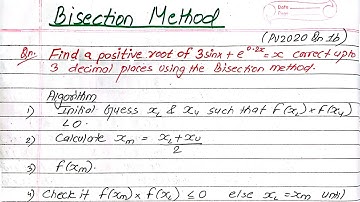 Bisection Method
(PU2020 Qn 1b)
Qn. Find a positive root of 3sinx + e^0.2x = x correct upto
3 decimal places using the Bisection method.
Algorithm
1) Initial Guess xL & xU such that f(xL) × f(xU)
<0.
2) Calculate xm = xL + xU / 2
3) f(xm).
4) Check if f(xm) × f(xL) ≤ 0 else xL = xm until